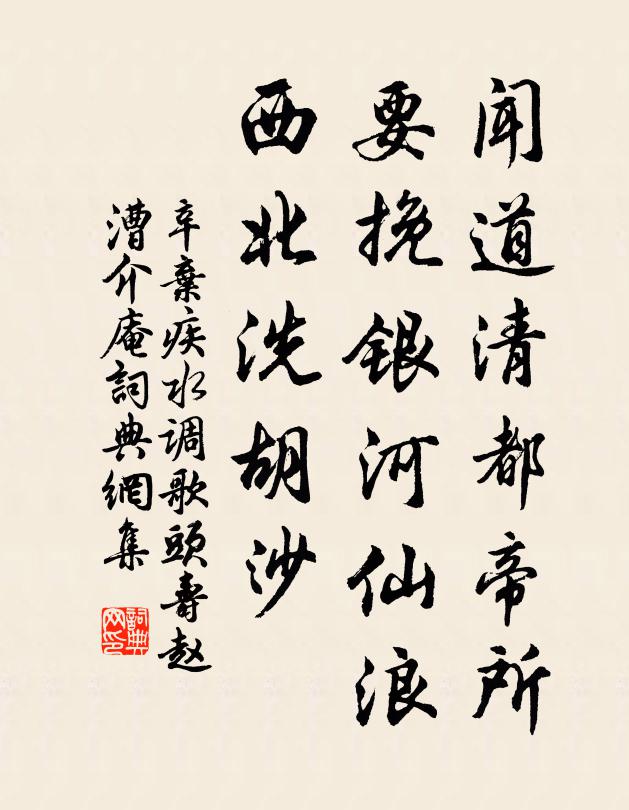 闻道清都帝所
要挽银河仙浪
西北洗胡沙
辛棄疾水调歌頭壽赵
漕介庵詞典網集
詞典网印